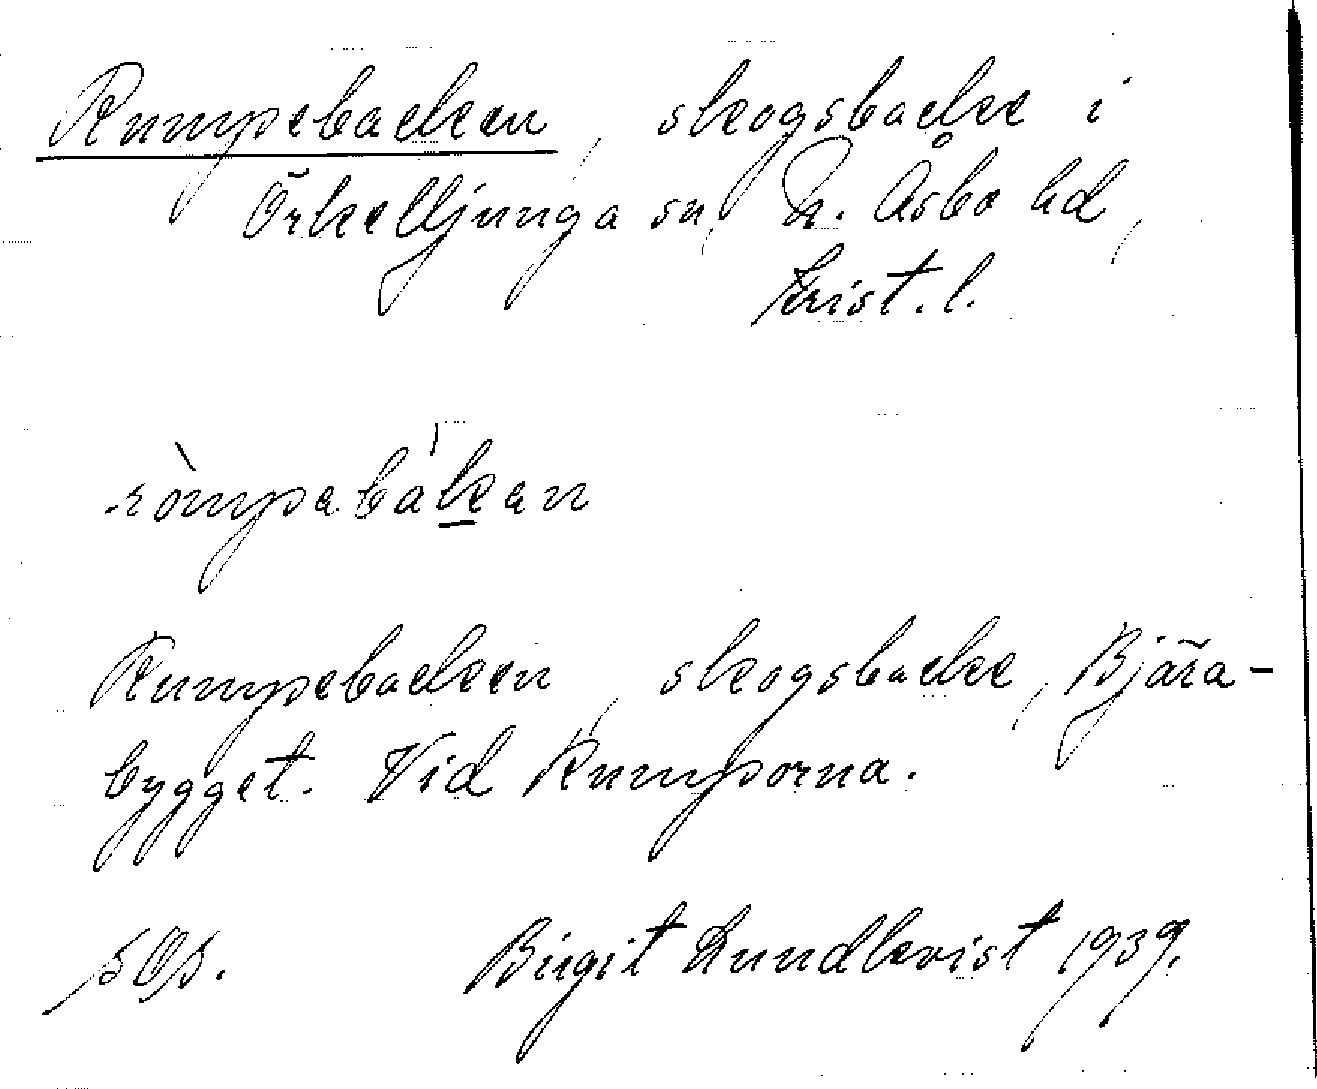 Rumpebacken, skogsbacke i
Örkelljunga sn, N. Åsbo hd,
Krist. l.
ròmpabákan
Rumpebacken, skogsbacke, Bjära-
bygget. Vid Rumporna.
Birgit Lundkvist 1939.